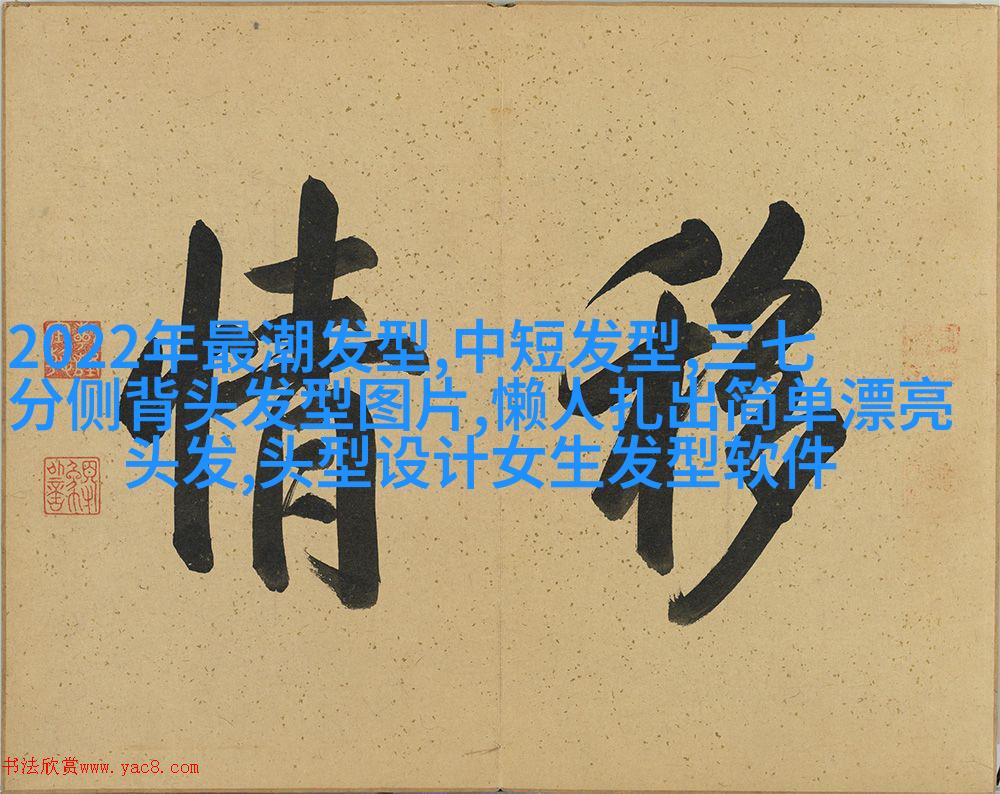 移情
2022年最潮发型,中短发型,三七
分侧背头发型图片,懒人扎出简单漂亮
头发,头型设计女生发型软件
书法欣赏www.yac8.com